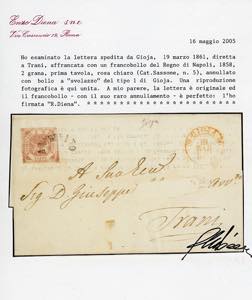 Enzo Diana s.n.c.
Via Crescenzio 19, Roma
16 maggio 2005
Ho esaminato la lettera spedita da Gioja, 19 marzo 1861, diretta
a Trani, affrancata con un francobollo del Regno di Napoli, 1858,
2 grana, prima tavola, rosa chiaro (Cat.Sassone, n. 5), annullato
con bollo a "svolazzo" del tipo 1 di Gioja. Una riproduzione
fotografica è quì unita. A mio parere, la lettera è originale ed
il francobollo - con il suo raro annullamento - è perfetto: l'ho
firmata "R.Diena".
Gioja
A Sua Ecc
Sig D. Giuseppe
Trani